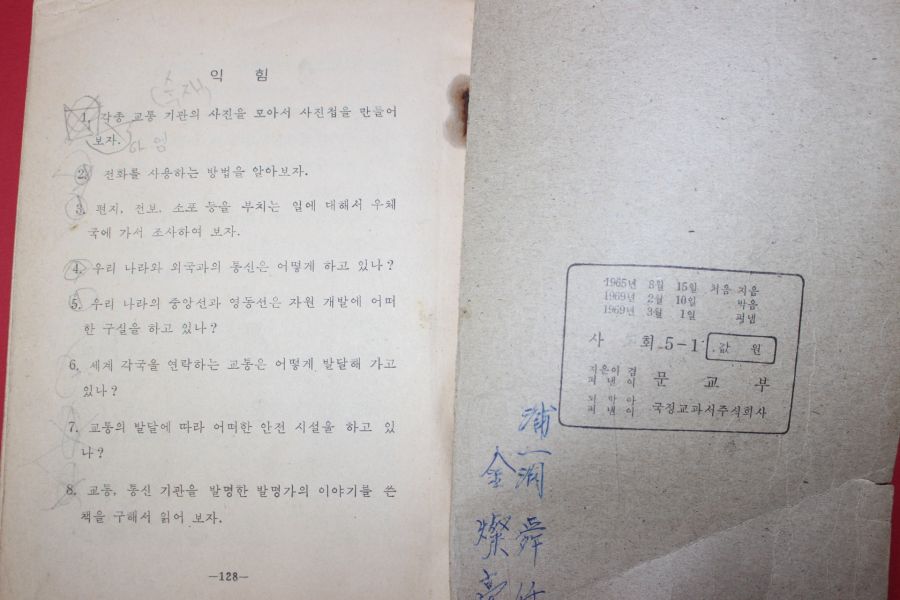 익 힘
(숙제)
1. 각종 교통 기관의 사진을 모아서 사진첩을 만들어
보자.
2. 전화를 사용하는 방법을 알아보자.
3. 편지, 전보, 소포 등을 부치는 일에 대해서 우체
국에 가서 조사하여 보자.
4. 우리 나라와 외국과의 통신은 어떻게 하고 있나?
5. 우리 나라의 중앙선과 영동선은 자원 개발에 어떠
한 구실을 하고 있나?
6. 세계 각국을 연락하는 교통은 어떻게 발달해 가고
있나?
7. 교통의 발달에 따라 어떠한 안전 시설을 하고 있
나?
8. 교통, 통신 기관을 발명한 발명가의 이야기를 쓴
책을 구해서 읽어 보자.
—128—
1965년 3월 15일 처음 지음
1969년 2월 10일 박음
1969년 3월 1일 펴냄
사 회 5-1 값 원
지은이 겸
펴낸이 문 교 부
펴낸이 국정교과서주식회사
金
燦
舜